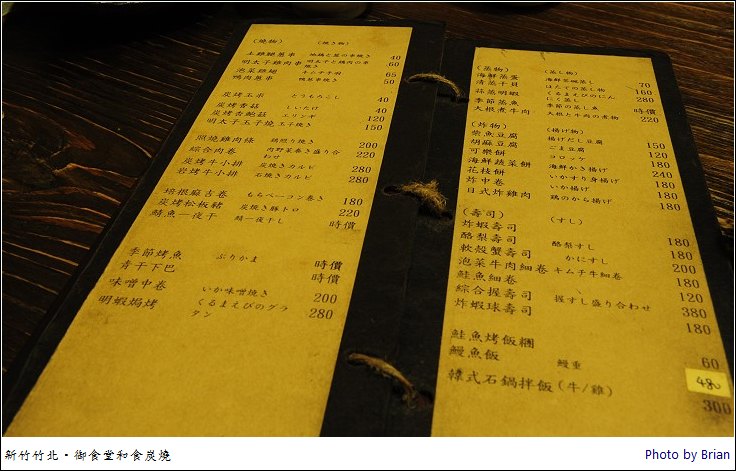 (燒物) (焼き物)
土雞腿蔥串 地鶏と葱の串焼き 40
明太子雞肉串 明太子と鶏肉の串焼き 60
泡菜雞翅 キムチ手羽 65
鴨肉蔥串 鴨葱串焼き 50
炭烤玉米 とうもろこし 40
炭烤香菇 しいたけ 40
炭烤杏鮑菇 エリンギ 120
明太子玉子燒 玉子焼き 150
照燒雞肉條 鶏照り焼き 200
綜合肉卷 肉野菜巻き盛り合わせ 220
炭烤牛小排 炭焼きカルビ 280
岩烤牛小排 石焼きカルビ 280
培根麻吉卷 もちベーコン巻き 180
炭烤松板豬 炭焼き豚トロ 220
鯖魚一夜干 鯖一夜干し 時價
季節烤魚 時價
青干下巴 ぶりかま 時價
味噌中卷 いか味噌焼き 200
明蝦焗烤 くるまえびのグラタン 280
(蒸物) (蒸し物)
海鮮蒸蛋 海鮮茶碗蒸し 70
清蒸干貝 ほたての蒸く物 160
蒜蒸明蝦 くるまえびのにんにく蒸し 280
季節蒸魚 季節の蒸し魚 時價
大根煮牛肉 大根と牛肉の煮物 220
(炸物) (揚げ物)
柴魚豆腐 揚げだし豆腐 150
胡麻豆腐 ごま豆腐 120
可樂餅 コロッケ 120
海鮮蔬菜餅 海鮮かき揚げ 180
花枝餅 いかすり身揚げ 240
炸中卷 いか揚げ 180
日式炸雞肉 鶏のから揚げ 180
(壽司) (すし)
炸蝦壽司 180
酪梨壽司 酪梨すし 180
軟殼蟹壽司 かにすし 200
泡菜牛肉細卷 キムチ牛細卷 180
鮭魚細卷 120
綜合握壽司 握すし盛り合わせ 380
炸蝦球壽司 180
鮭魚烤飯糰 60
鰻魚飯 鰻重 480
韓式石鍋拌飯(牛/雞) 300
新竹竹北‧御食堂和食炭燒
Photo by Brian